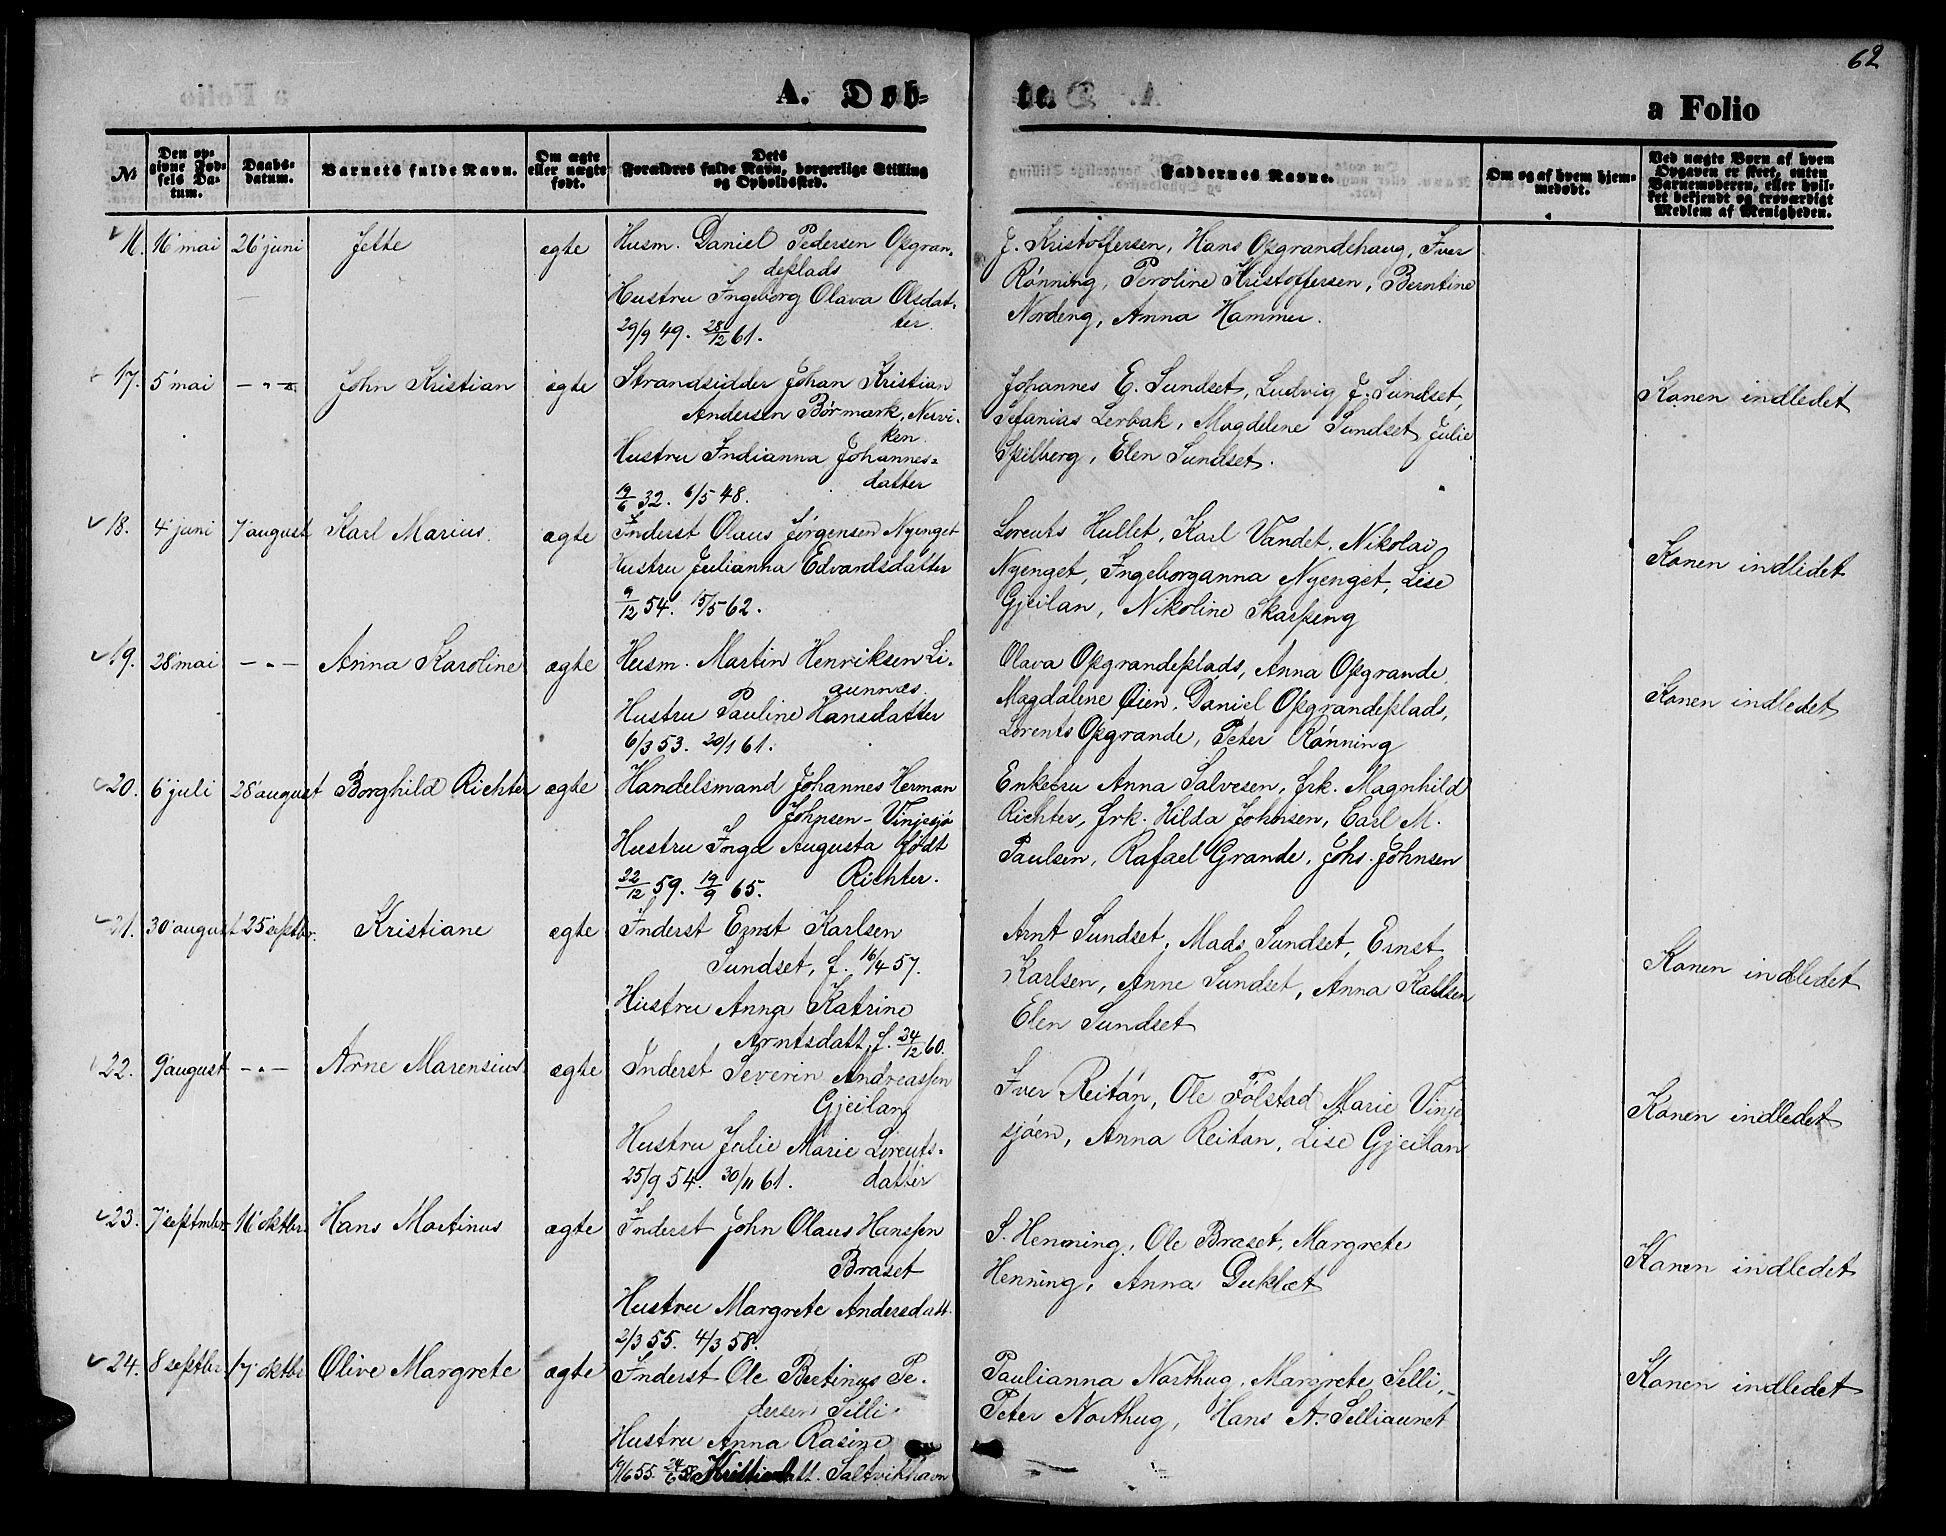 62
A. Døb-
te.
a Folio
№
Den op-
givne Fød-
sels Da-
tum.
Daabs-
datum.
Barnets fulde Navn.
Om ægte
eller uægte
født.
Dets
Forældres fulde Navn, borgerlige Stilling
og Opholdssted.
Faddernes Navne.
Om og af hvem hjem-
medøbt.
Ved uægte Børn af hvem
Opgaven er skeet, enten
Barnemoderen, eller hvil-
ket bekjendt og troværdigt
Medlem af Menigheden.
16. 16' mai 26' juni Jette ægte Husm. Daniel Pedersen Opgran-
deplads
Hustru Ingeborg Olava Olsdat-
ter.
29/9 49. 28/2 61.
J. Kristoffersen, Hans Opgrandehaug, Iver
Rønning, Peroline Kristoffersen, Berntine
Nordeng, Anna Hammer.
17. 5' mai — " — John Kristian ægte Strandsidder Johan Kristian
Andersen Børmark, Nervi-
ken.
Hustru Indianna Johannes-
datter
19/6 32. 6/5 48.
Johannes E. Sundset, Ludvig J. Sundset,
Stanias Lerbak, Magdelene Sundset, Julie
Spilberg, Elen Sundset.
Konen indledet
18. 4' juni 7' august Karl Marius. ægte Inderst Olaus Jørgensen Nyenget
Hustru Julianna Edvardsdatter
9/12 54. 15/5 62.
Lorents Hullet, Karl Vandet, Nikolai
Nyenget, Ingeborganna Nyenget, Lise
Gjeilan, Nikoline Skarpeng
Konen indledet
19. 28' mai — " — Anna Karoline ægte Husm. Martin Henriksen Li-
aunnes.
Hustru Pauline Hansdatter
6/3 53. 20/1 61.
Olava Opgrandeplads, Anna Opgrande,
Magdalene Øien, Daniel Opgrandeplads,
Lorents Opgrande, Peter Rønning
Konen indledet
20. 6' juli 28' august Borghild Richter ægte Handelsmand Johannes Herman
Johnsen - Vinjesjø
Hustru Inga Augusta født
Richter.
22/12 59. 19/9 65.
Enkefru Anna Salvesen, frk. Magnhild
Richter, frk. Hilda Johnsen, Carl M.
Paulsen, Rafael Grande, Johs. Johnsen
21. 30' august 25' septbr. Kristiane ægte Inderst Ernst Karlsen
Sundset, f. 16/4 57.
Hustru Anna Katrine
Arntsdatt. f. 24/12 60.
Arnt Sundset, Mads Sundset, Ernst
Karlsen, Anne Sundset, Anna Karlsen
Elen Sundset
Konen indledet
22. 9' august — " — Arne Marensius ægte Inderst Severin Andreassen
Gjeilan
Hustru Julie Marie Lorents-
datter
25/9 54. 30/11 61.
Iver Reitan, Ole Følstad, Marie Vinje-
sjøen, Anna Reitan, Lise Gjeilan
Konen indledet
23. 7' septmbr. 16' oktbr. Hans Martinus ægte Inderst John Olaus Hanssen
Braset
Hustru Margrete Andersdatt.
2/3 55. 4/3 58.
S. Henning, Ole Braset, Margrete
Henning, Anna Duklæt
Konen indledet
24. 8 septbr. 17' oktbr. Olive Margrete ægte Inderst Ole Bertinus Pe-
dersen Selli
Hustru Anna Rasine
Kristiansdatt. Saltvikhavn
Paulianna Northug, Margrete Selli,
Peter Northug, Hans A. Selliaunet
Konen indledet